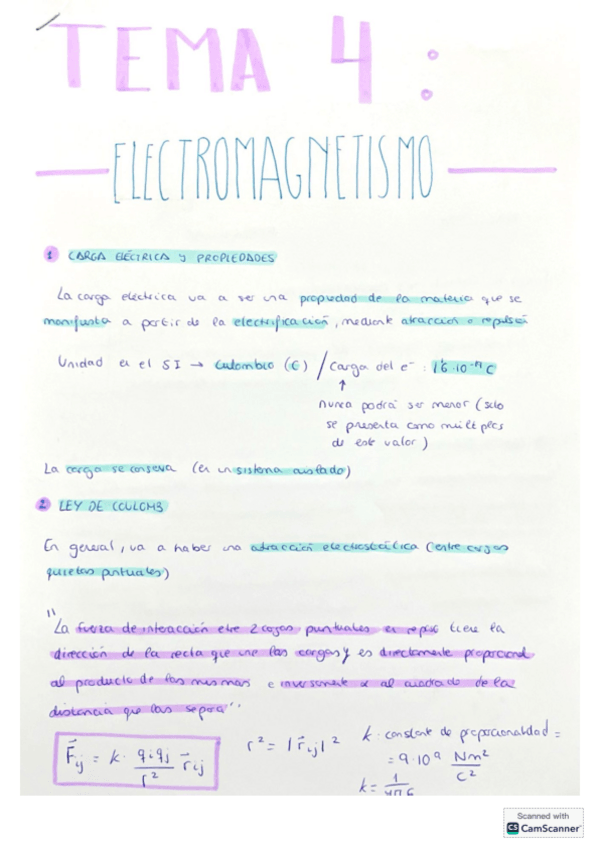 TEMA 4:
ELECTROMAGNETISMO
1 CARGA ELÉCTRICA y PROPIEDADES
La carga eléctrica va a ser una propiedad de la materia que se
manifiesta a partir de la electrificación, mediante atracción o repulsión
Unidad en el SI → Culombio (C) / Carga del e⁻ : 1'6·10⁻¹⁹ C
↑
nunca podrá ser menor (solo
se presenta como múltiplos
de este valor)
La carga se conserva (en un sistema aislado)
2 LEY DE COULOMB
En general, va a haber una atracción electrostática (entre cargas
quietas puntuales)
"La fuerza de interacción entre 2 cargas puntuales en reposo tiene la
dirección de la recta que une las cargas y es directamente proporcional
al producto de las mismas e inversamente α al cuadrado de la
distancia que las separa".
F⃗ij = k · qiqj / r² r⃗ij
r² = |r⃗ij|²
k: constante de proporcionalidad =
= 9·10⁹ Nm² / C²
k = 1
Scanned with
CS CamScanner